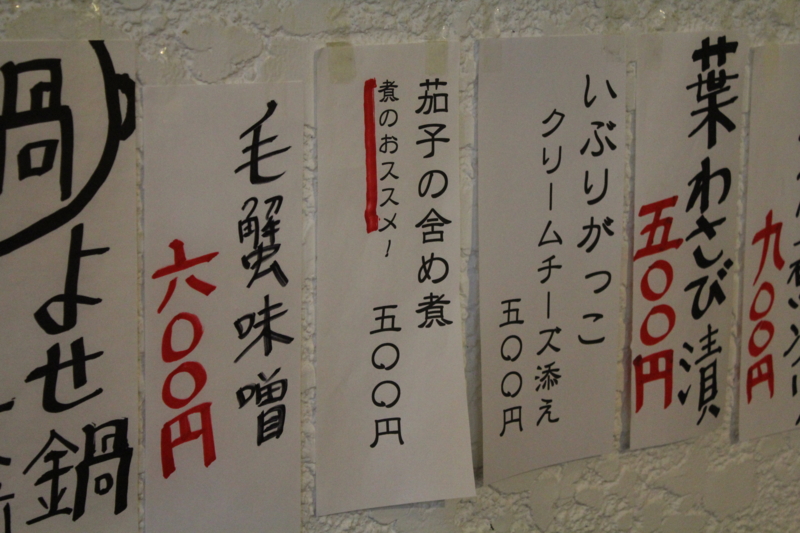 葉わさび漬
五〇〇円
いぶりがっこ
クリームチーズ添え
五〇〇円
茄子の含め煮
煮のおススメ!
五〇〇円
毛蟹味噌
六〇〇円
鍋
よせ鍋
九〇〇円